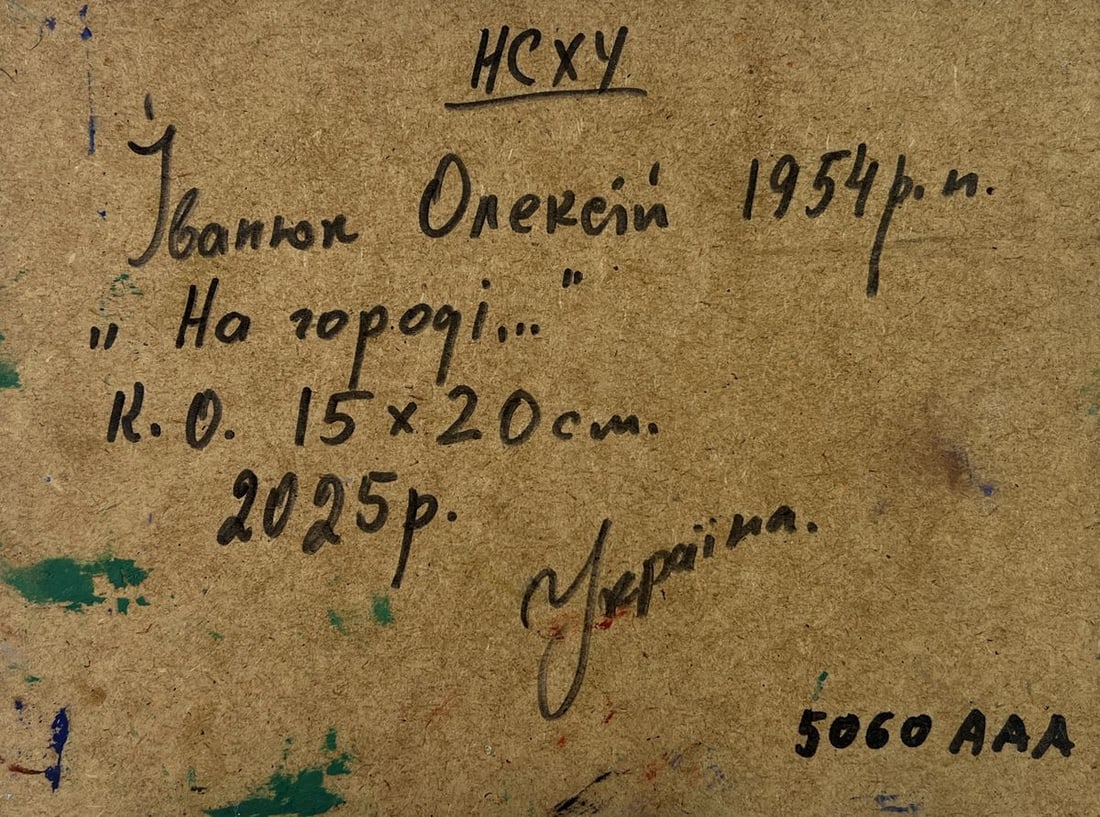 НСХУ
Іванюк Олексій 1954 р.н.
„ На городі... "
К.О. 15 х 20 см.
2025 р.
Україна.
5060 ААА